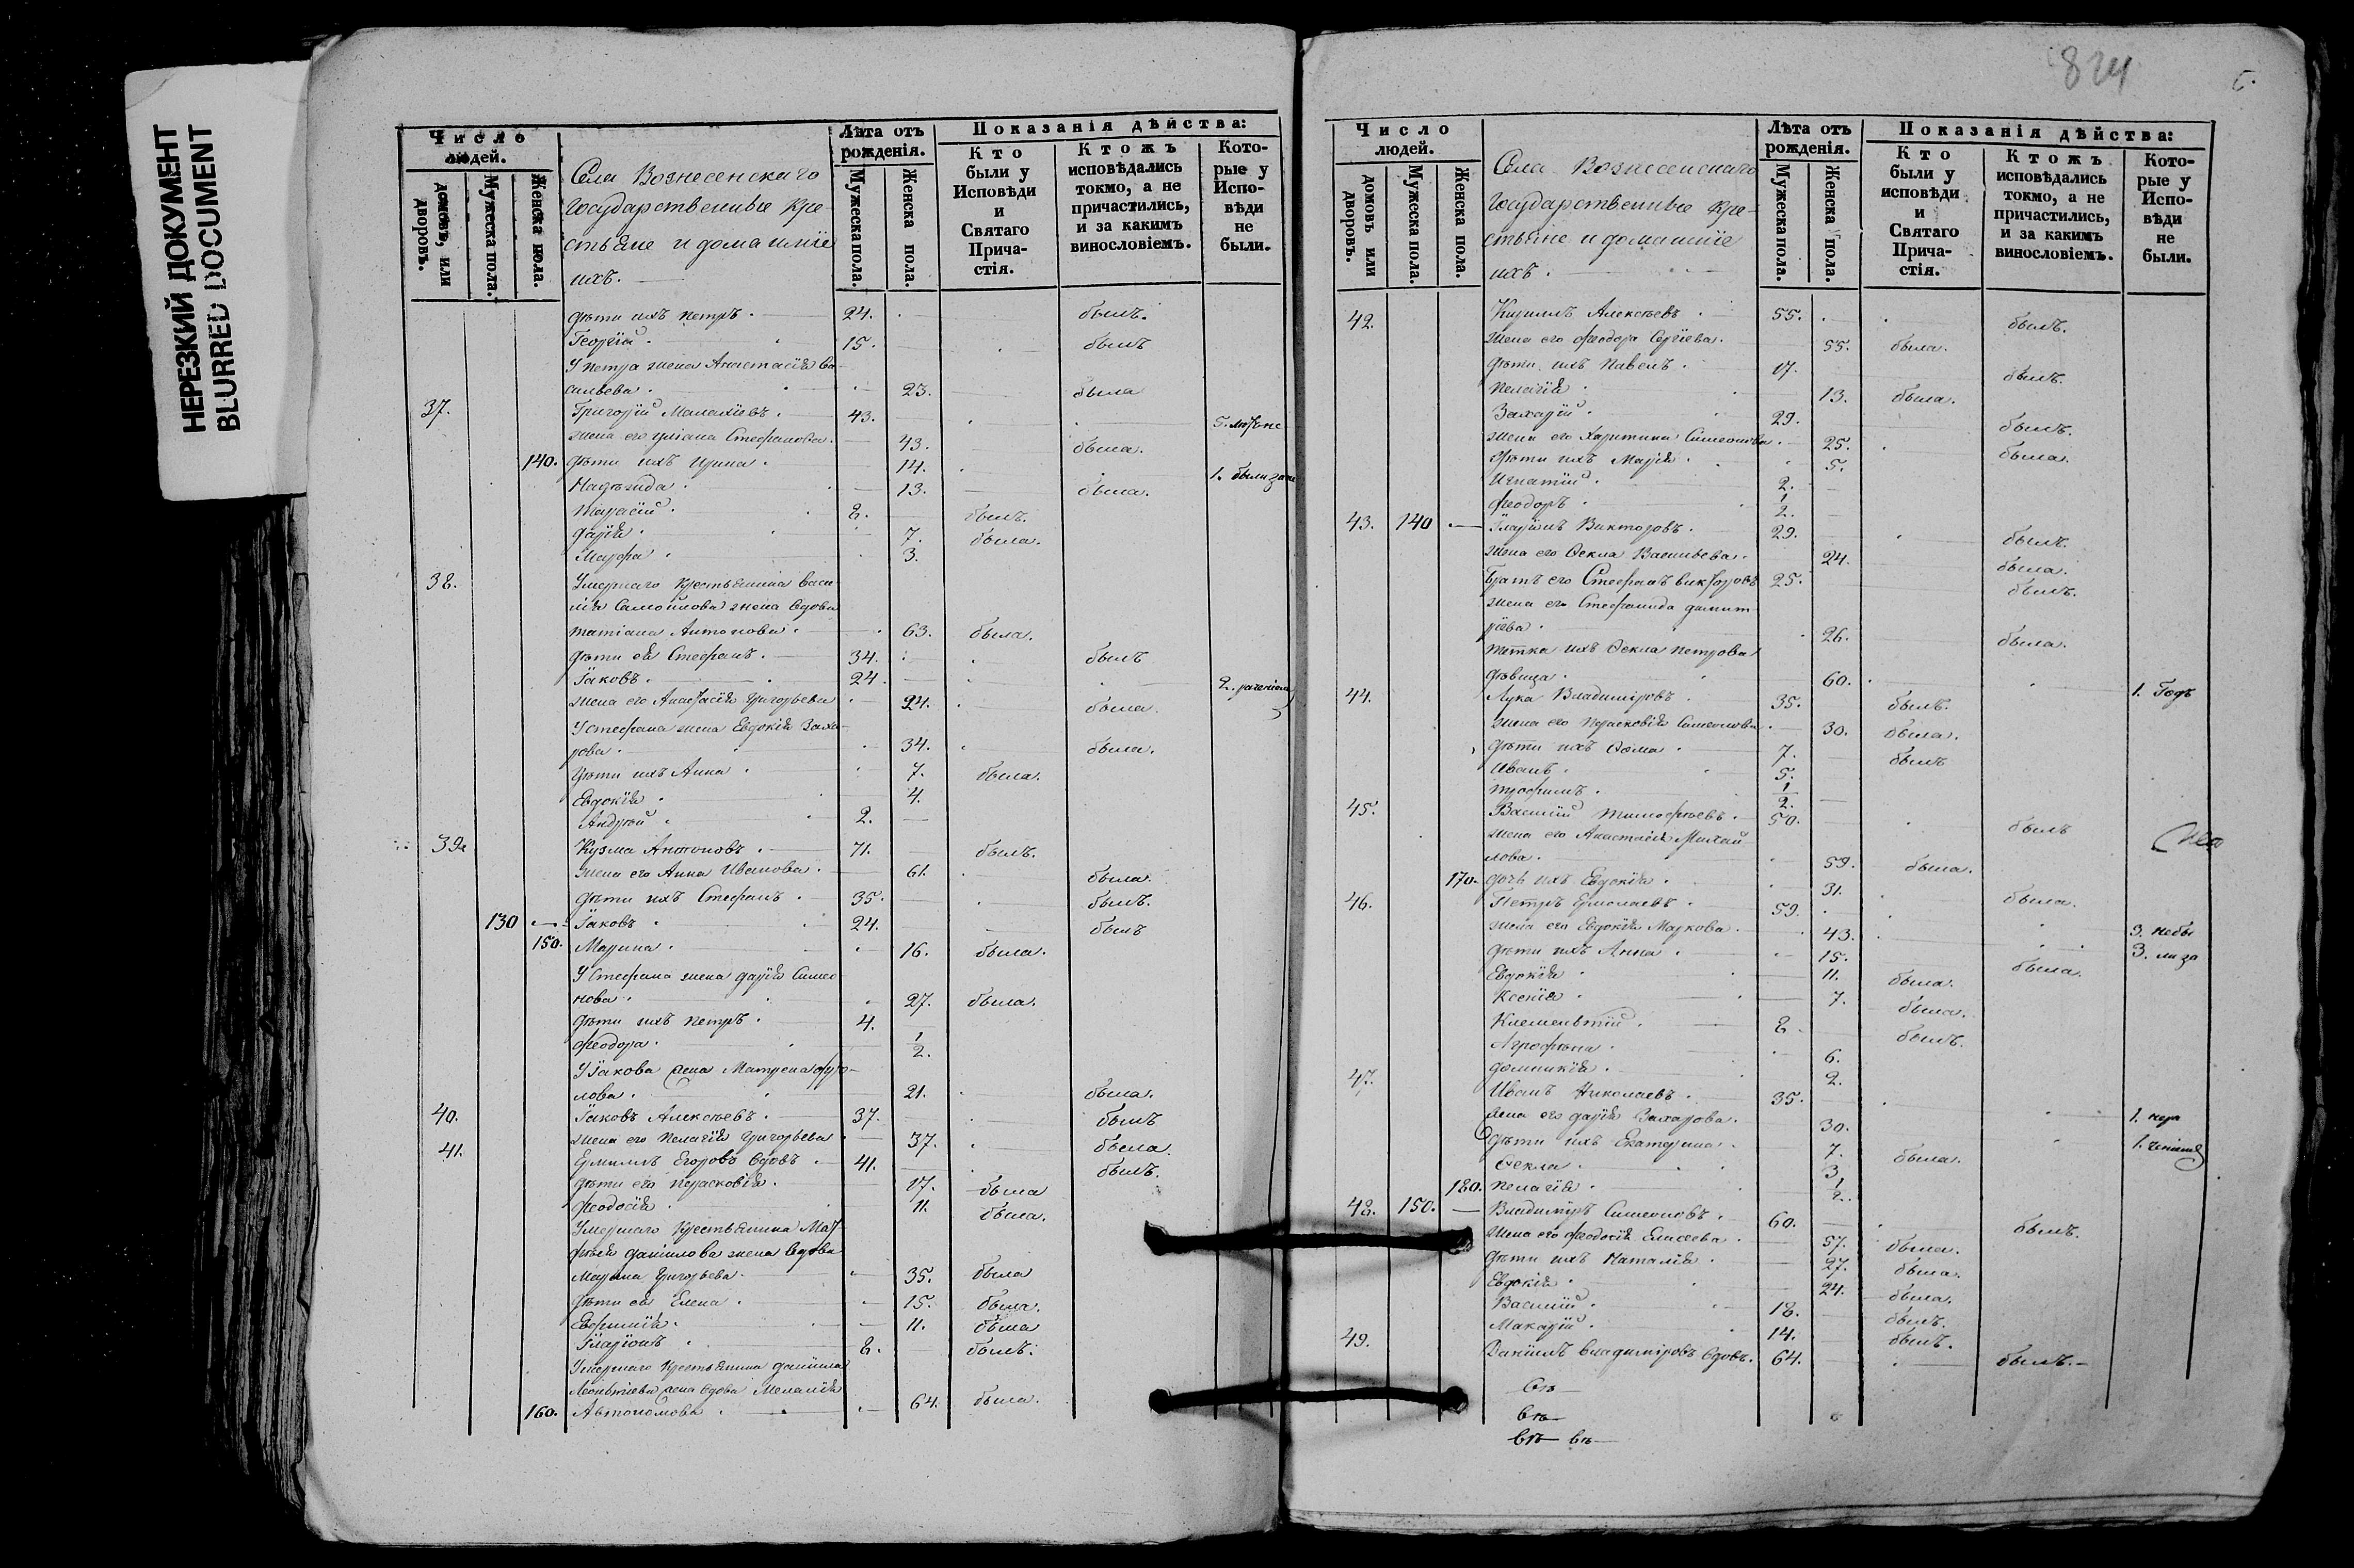 НЕРЕЗКИЙ ДОКУМЕНТ
BLURRED DOCUMENT
Число людей.
домовъ, или дворовъ.
Мужеска пола.
Женска пола.
Села Вознесенскаго
Государственные Кре-
стьяне и домашніе
ихъ.
Лѣта отъ рожденія.
Мужеска пола.
Женска пола.
Показанія дѣйства:
Кто были у Исповѣди и Святаго Прича-стія.
Ктожъ исповѣдались токмо, а не причастились, и за какимъ винословіемъ.
Кото-рые у Испо-вѣди не были.
Дѣти ихъ Петръ. 24. былъ.
Георгій. 15. былъ
У Петра жена Анастасія Ва-
сильева. 23. была
37. Григорій Малахіевъ. 43.
жена его Уліана Стефанова. 43. была.
140. Дѣти ихъ Ирина. 14. 1.
Надѣжда. 13. была.
Тарасій. 8. былъ.
Дарія. 7. была.
Марфа. 3.
38. Умершаго крестьянина Васи-
лія Самойлова жена вдова
Татіана Антонова. 63. была.
Дѣти ея Стефанъ. 34. былъ
Іаковъ. 24. 2.
жена его Анастасія Григорьева 24. была.
У Стефана жена Евдокія Заха-
рова. 34. была.
Дѣти ихъ Анна. 7. была.
Евдокія. 4.
Андрей. 2.
39. Кузма Антоновъ. 71. былъ.
жена его Анна Иванова. 61. была.
Дѣти ихъ Стефанъ. 35. былъ.
130 Іаковъ. 24. былъ
150. Марина. 16. была.
У Стефана жена Дарія Симео-
нова. 27. была.
Дѣти ихъ Петръ. 4.
Феодора. 1/2.
У Іакова жена Матрена
лова. 21. была.
40. Іаковъ Алексѣевъ. 37. былъ
жена его Пелагія Григорьева 37. была.
41. Ермилъ Егоровъ вдовъ. 41. былъ.
Дѣти его Парасковія. 17. была
Феодосія. 11. была.
Умершаго крестьянина Мат-
фѣя Данилова жена вдова
Марина Григорьева. 35. была
Дѣти ея Елена. 15. была.
Евфимія. 11. была
Иларіонъ. 8. былъ.
Умершаго крестьянина Даніила
Леонтіева жена вдова Меланія
160. Автономова. 64. была.
824
Число людей.
домовъ или дворовъ.
Мужеска пола.
Женска пола.
Села Вознесенскаго
Государственные Кре-
стьяне и домашніе
ихъ.
Лѣта отъ рожденія.
Мужеска пола.
Женска пола.
Показанія дѣйства:
Кто были у исповѣди и Святаго Прича-стія.
Ктожъ исповѣдались токмо, а не причастились, и за какимъ винословіемъ.
Кото-рые у Испо-вѣди не были.
42. Кириллъ Алексѣевъ. 55. былъ.
жена его Феодора Сергіева. 55. была.
Дѣти ихъ Павелъ. 17. былъ.
Пелагія. 13. была.
Захарій. 29. былъ.
жена его Харитина Симеонова. 25. была.
Дѣти ихъ Марія. 5.
Игнатій. 2.
Феодоръ. 1/2.
43. 140 Іларіонъ Викторовъ. 29. былъ.
жена его Ѳекла Васильева. 24. была.
Братъ его Стефанъ Викторовъ 25. былъ.
жена его Стефанида Димит-
ріева. 26. была.
тетка ихъ Ѳекла Петрова
дѣвица. 60. 1. Годъ
44. Лука Владиміровъ. 35. былъ.
жена его Парасковія Симеонова. 30. была.
Дѣти ихъ Ѳома. 7. былъ
Иванъ. 5.
Трофимъ. 1/2.
45. Василій Тимофѣевъ. 50. былъ
жена его Анастасія Михай-
лова. 59. была.
170. дочь ихъ Евдокія. 31. была.
46. Петръ Ермолаевъ. 59.
жена его Евдокія Маркова. 43. 3. небы
Дѣти ихъ Анна. 15. была. 3. ли за
Евдокія. 11. была.
Ксенія. 7. была.
Климентій. 8. былъ.
Агрофена. 6.
Домникія. 2.
47. Иванъ Николаевъ. 35.
жена его Дарія Захарова. 30. 1. нера
Дѣти ихъ Екатерина. 7. была. 1. ченіемъ
Ѳекла. 3.
180. Пелагія. 1/2.
48. 150. Владиміръ Симеоновъ. 60. былъ.
жена его Феодосія Елисеева. 57. была.
Дѣти ихъ Наталія. 27. была.
Евдокія. 24. была.
Василій. 18. былъ.
Макарій. 14. былъ.
49. Даніилъ Владиміровъ вдовъ. 64. былъ.